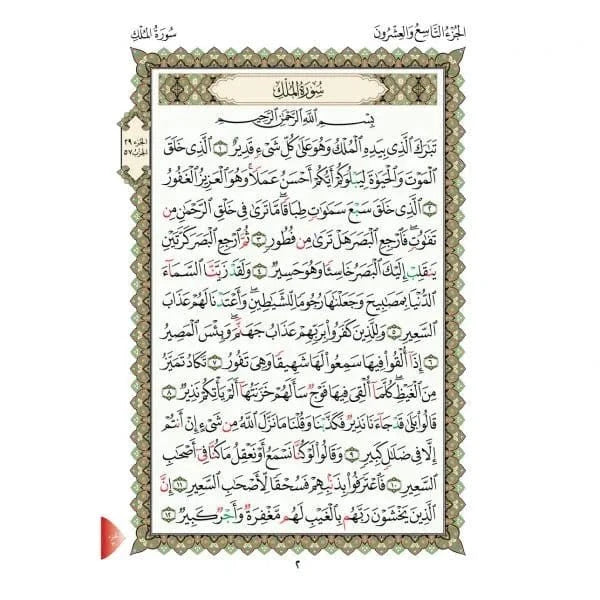 الجزء التاسع والعشرون
سورة الملك
سُورَةُ المُلْكِ
بِسْمِ ٱللَّهِ ٱلرَّحْمَٰنِ ٱلرَّحِيمِ
الجزء ٢٩
الحزب ٥٧
تَبَٰرَكَ ٱلَّذِى بِيَدِهِ ٱلْمُلْكُ وَهُوَ عَلَىٰ كُلِّ شَىْءٍ قَدِيرٌ ١ ٱلَّذِى خَلَقَ
ٱلْمَوْتَ وَٱلْحَيَوٰةَ لِيَبْلُوَكُمْ أَيُّكُمْ أَحْسَنُ عَمَلًا ۚ وَهُوَ ٱلْعَزِيزُ ٱلْغَفُورُ
٢ ٱلَّذِى خَلَقَ سَبْعَ سَمَٰوَٰتٍ طِبَاقًا ۖ مَّا تَرَىٰ فِى خَلْقِ ٱلرَّحْمَٰنِ مِن
تَفَٰوُتٍ ۖ فَٱرْجِعِ ٱلْبَصَرَ هَلْ تَرَىٰ مِن فُطُورٍ ٣ ثُمَّ ٱرْجِعِ ٱلْبَصَرَ كَرَّتَيْنِ
يَنقَلِبْ إِلَيْكَ ٱلْبَصَرُ خَاسِئًا وَهُوَ حَسِيرٌ ٤ وَلَقَدْ زَيَّنَّا ٱلسَّمَآءَ
ٱلدُّنْيَا بِمَصَٰبِيحَ وَجَعَلْنَٰهَا رُجُومًا لِّلشَّيَٰطِينِ ۖ وَأَعْتَدْنَا لَهُمْ عَذَابَ
ٱلسَّعِيرِ ٥ وَلِلَّذِينَ كَفَرُوا۟ بِرَبِّهِمْ عَذَابُ جَهَنَّمَ ۖ وَبِئْسَ ٱلْمَصِيرُ
٦ إِذَآ أُلْقُوا۟ فِيهَا سَمِعُوا۟ لَهَا شَهِيقًا وَهِىَ تَفُورُ ٧ تَكَادُ تَمَيَّزُ
مِنَ ٱلْغَيْظِ ۖ كُلَّمَآ أُلْقِىَ فِيهَا فَوْجٌ سَأَلَهُمْ خَزَنَتُهَآ أَلَمْ يَأْتِكُمْ نَذِيرٌ ٨
قَالُوا۟ بَلَىٰ قَدْ جَآءَنَا نَذِيرٌ فَكَذَّبْنَا وَقُلْنَا مَا نَزَّلَ ٱللَّهُ مِن شَىْءٍ إِنْ أَنتُمْ
إِلَّا فِى ضَلَٰلٍ كَبِيرٍ ٩ وَقَالُوا۟ لَوْ كُنَّا نَسْمَعُ أَوْ نَعْقِلُ مَا كُنَّا فِىٓ أَصْحَٰبِ
ٱلسَّعِيرِ ١٠ فَٱعْتَرَفُوا۟ بِذَنۢبِهِمْ فَسُحْقًا لِّأَصْحَٰبِ ٱلسَّعِيرِ ١١ إِنَّ
ٱلَّذِينَ يَخْشَوْنَ رَبَّهُم بِٱلْغَيْبِ لَهُم مَّغْفِرَةٌ وَأَجْرٌ كَبِيرٌ ١٢
٢